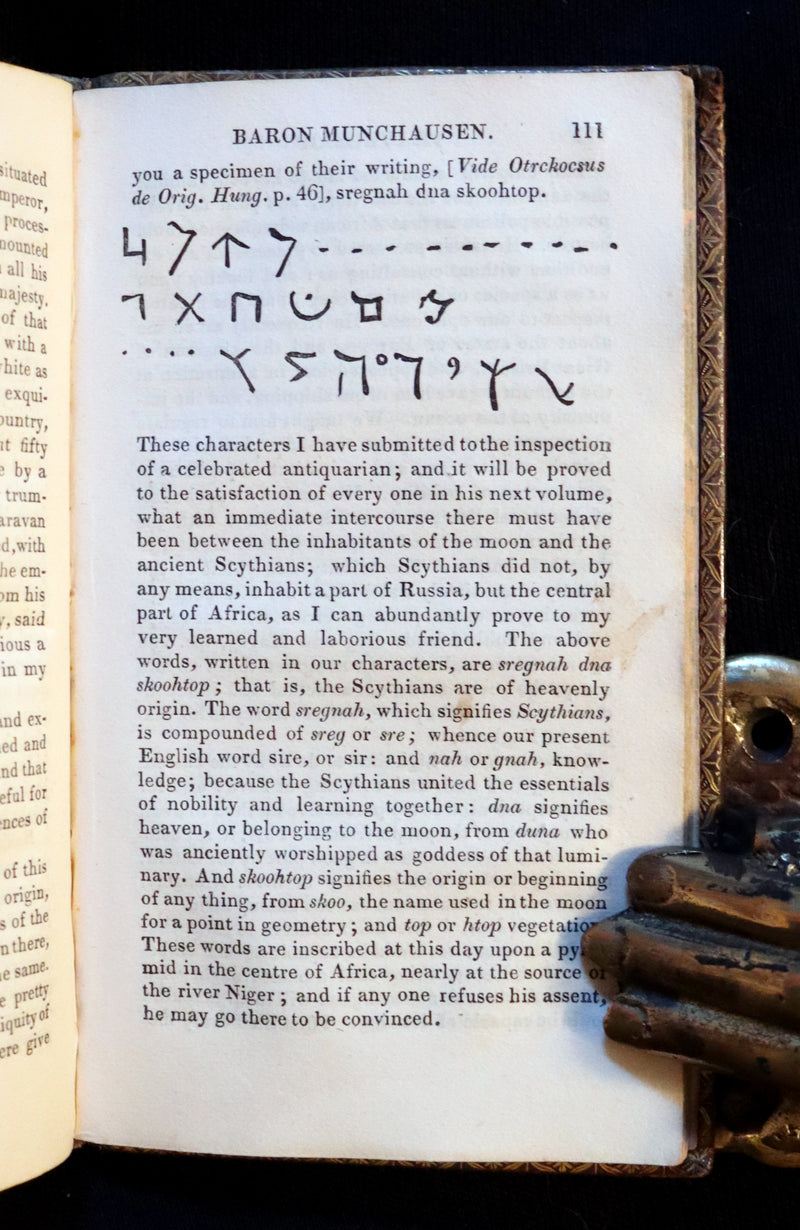 situated
mperor,
proces-
nounted
all his
najesty,
of that
with a
hite as
exqui-
ountry,
at fifty
by a
trum-
aravan
d, with
he em-
om his
said
ious a
in my
and ex-
ed and
nd that
eful for
nces of
of this
origin,
s of the
n there,
e same.
e pretty
iquity of
ere give
BARON MUNCHAUSEN. 111
you a specimen of their writing, [Vide Otrckocsus
de Orig. Hung. p. 46], sregnah dna skoohtop.
These characters I have submitted to the inspection
of a celebrated antiquarian; and it will be proved
to the satisfaction of every one in his next volume,
what an immediate intercourse there must have
been between the inhabitants of the moon and the
ancient Scythians; which Scythians did not, by
any means, inhabit a part of Russia, but the central
part of Africa, as I can abundantly prove to my
very learned and laborious friend. The above
words, written in our characters, are sregnah dna
skoohtop; that is, the Scythians are of heavenly
origin. The word sregnah, which signifies Scythians,
is compounded of sreg or sre; whence our present
English word sire, or sir: and nah or gnah, know-
ledge; because the Scythians united the essentials
of nobility and learning together: dna signifies
heaven, or belonging to the moon, from duna who
was anciently worshipped as goddess of that lumi-
nary. And skoohtop signifies the origin or beginning
of any thing, from skoo, the name used in the moon
for a point in geometry; and top or htop vegetation
These words are inscribed at this day upon a py
mid in the centre of Africa, nearly at the source of
the river Niger; and if any one refuses his assent,
he may go there to be convinced.